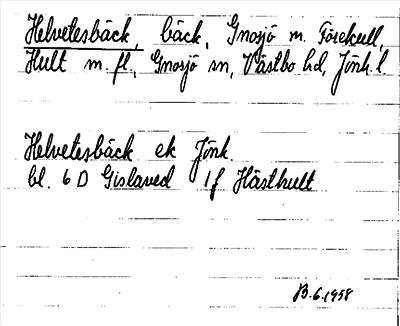 Helvetesbäck, bäck, Gnosjö m. Förekull,
Hult m. fl., Gnosjö sn, Västbo hd, Jönk. l.
Helvetesbäck ek Jönk.
bl. 6 D Gislaved 1f Hästhult
13.6.1958